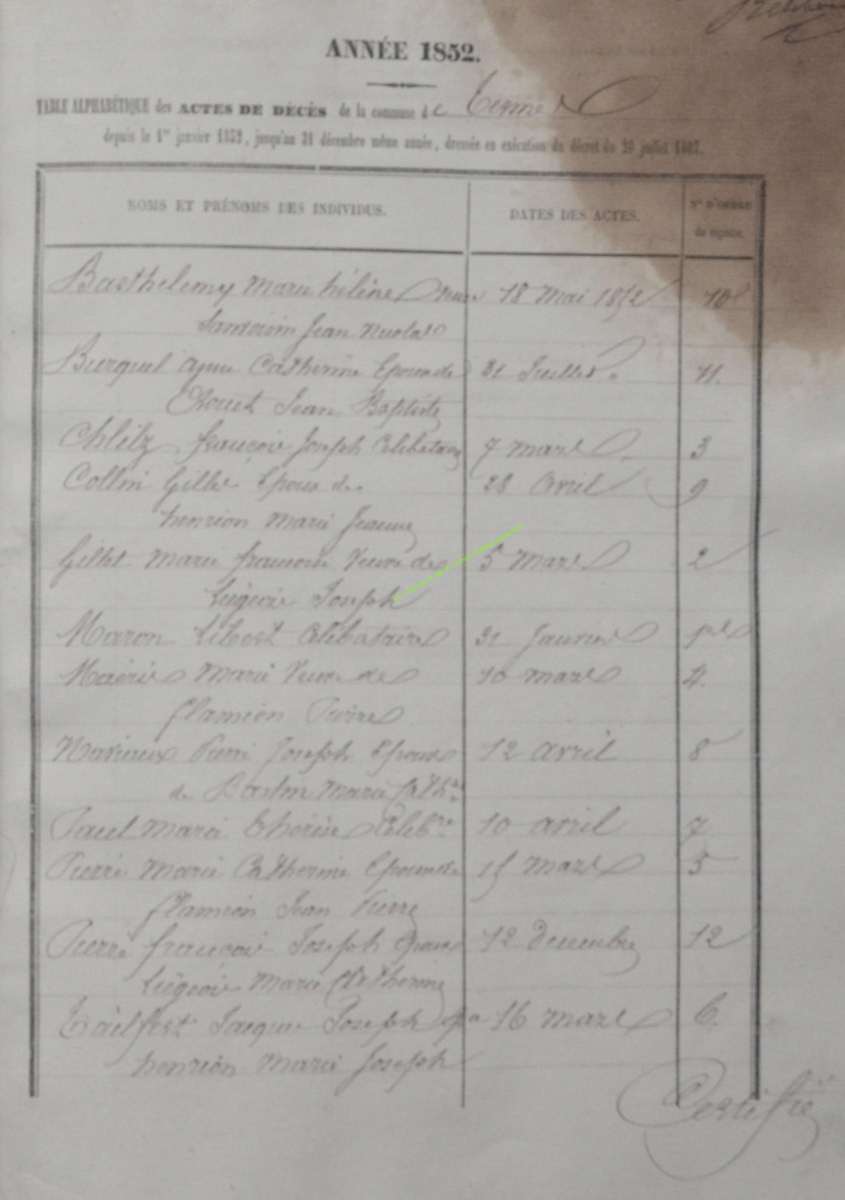 ANNÉE 1852.
TABLE ALPHABÉTIQUE des ACTES DE DÉCÈS de la commune de Termes
depuis le 1er janvier 1852, jusqu'au 31 décembre même année, dressée en exécution du décret du 20 juillet 1807.
NOMS ET PRÉNOMS DES INDIVIDUS. DATES DES ACTES. N° D'ORDRE
du registre.
Barthelemy Marie hélène 18 Mai 1852 10
Jean Nicolas
Burquel Catherine Epouse de 31 Juillet. 11.
Jean Baptiste
Chlitz françois Joseph Celibataire 7 mars 3
Collin Gilles Epoux de 28 Avril 9
henrion Marie Jeanne
Gillet Marie françoise Veuve de 5 Mars 2
Liégeois Joseph
Maron Celibataire 31 Janvier 1er
Marie Veuve de 10 mars 4.
flamion Pierre
Pierre Joseph Epoux 12 avril 8
de Marie Cathne
Paul Marie thérèse Celibre 10 avril 7
Pierre Marie Catherine Epouse de 15 Mars 5
flamion Jean Pierre
Pierre françois Joseph Epoux 12 Decembre 12
Liégeois Marie Catherine
Jacques Joseph 16 mars 6.
henrion Marie Joseph
Certifié